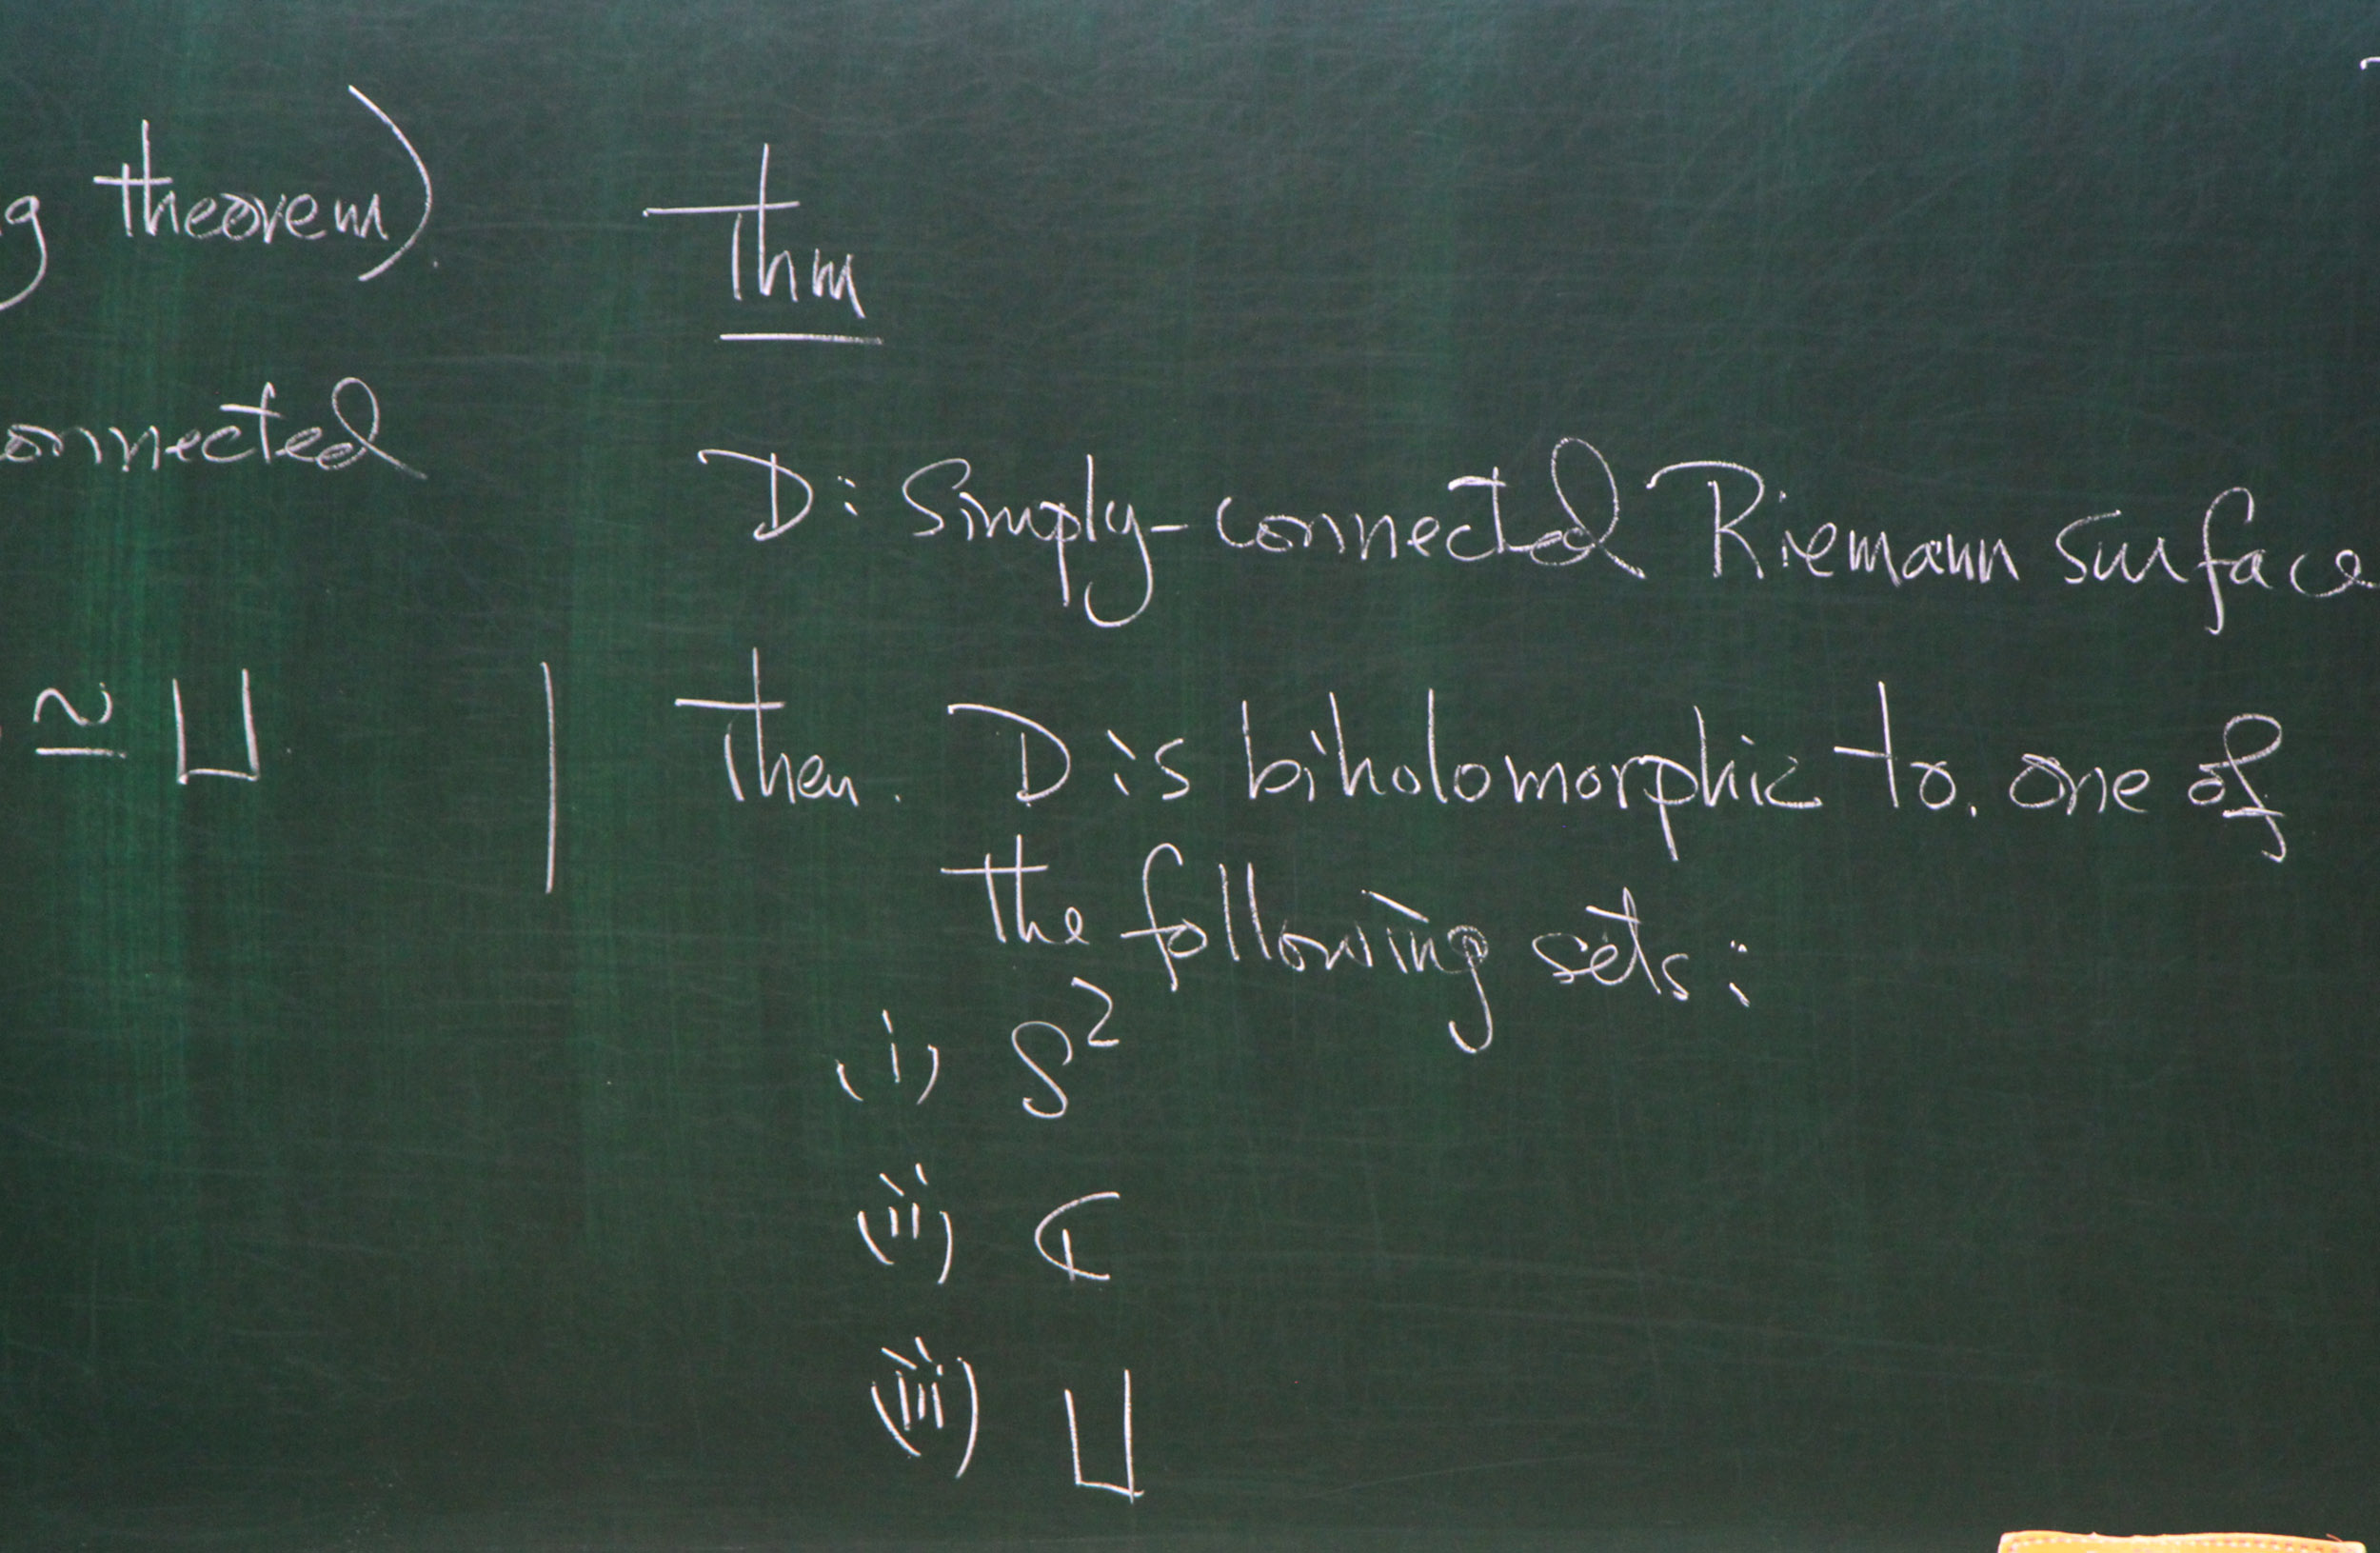 g theorem).
onnected
≅ U.
Thm
D: Simply-connected Riemann surface
Then. D is biholomorphic to. one of
the following sets:
(i) S²
(ii) ℂ
(iii) U